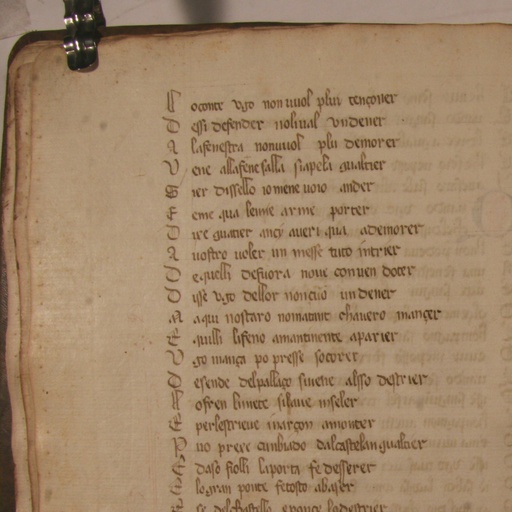 L oconte vgo non uuol plui tençoner
D essi defender noli ual vn dener
A la fenestra non uuol plu demorer
V ene alla fenesalla si apela gualtier
S ier dissello io me ne uoio ander
E eme qua le mie arme porter
D ise gualtier anci aueri qua ademorer
A uostro uoler un messe tuto intrier
D e quelli defuora noue conuen doter
D isse vgo dellor non cuio un dener
M a qui nostaro no ma tant chauero mançer
E quilli li feno amantinente aparier
V go mança po presse socorer
D esende del palaço si uene alsso destrier
L ofren li mete si laue inseler
E per lestrieue inarçon amonter
P uo prexe cumiado dal castelan gualtier
E daso fiolli la porta fe desserer
E lo gran ponte fe tosto abaser
E se del chastello eponçe lo destrier